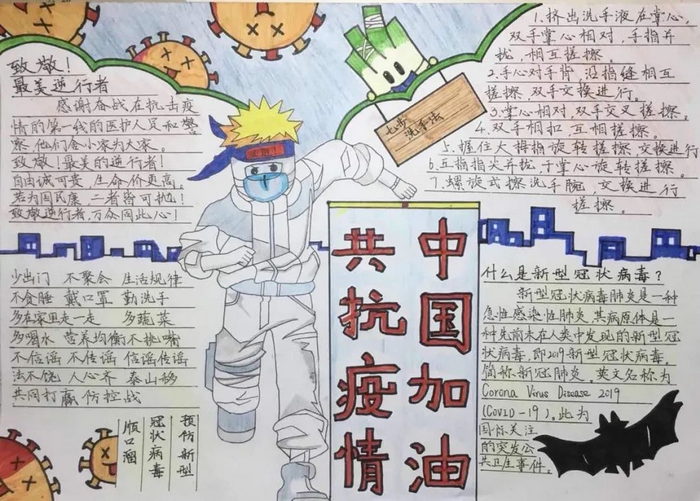 致敬!
最美逆行者
感谢奋战在抗击疫
情的第一线的医护人员和警
察,他们舍小家为大家。
致敬!最美的逆行者!
自由诚可贵,生命价更高。
若为国民康,二者皆可抛!
致敬逆行者,万众同此心!
七步
洗手法
1.挤出洗手液在掌心,
双手掌心相对,手指并
拢,相互搓擦。
2.手心对手背,沿指缝相互
搓擦,双手交换进行。
3.掌心相对,双手交叉搓擦。
4.双手相扣互相搓擦。
5.握住大拇指旋转搓擦,交换进行
6.五指指尖并拢,于掌心旋转搓擦。
7.螺旋式擦洗手腕,交换进行
搓擦。
中国加油
共抗疫情
少出门 不聚会 生活规律
不食腥 戴口罩 勤洗手
多在家里走一走 多蔬菜
多喝水 营养均衡不挑嘴
不信谣 不传谣 信谣传谣
法不饶 人心齐 泰山移
共同打赢防控战
预防新型
冠状病毒
顺口溜
什么是新型冠状病毒?
新型冠状病毒肺炎是一种
急性感染性肺炎,其病原体是一
种先前未在人类中发现的新型冠
状病毒,即2019新型冠状病毒。
简称新冠肺炎,英文名称为
Corona Virus Disease 2019
(COVID-19),此为
国际关注
的突发公
共卫生事件。